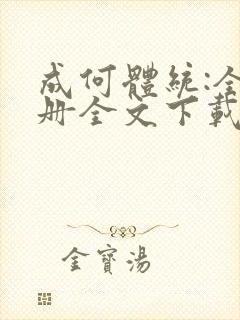 成何體統:全
册全文下載
金寶湯